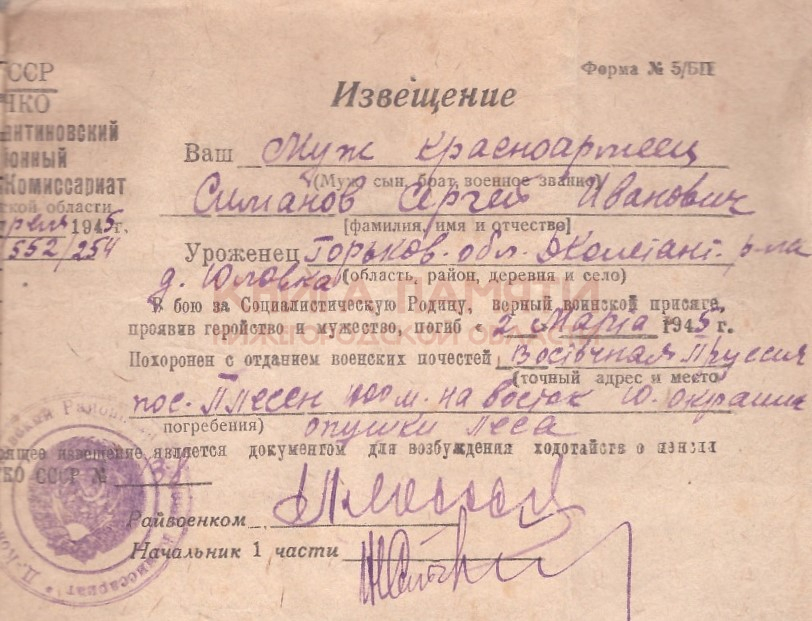 ССР
НКО
Форма № 5/БП
Извещение
антиновский
онный
Комиссариат
ской области
преля 1945 г.
552/254
Ваш Муж красноармеец
(Муж сын, брат, военное звание)
Симанов Сергей Иванович
[фамилия, имя и отчество]
Уроженец Горьков. обл. Д Констант. р-на
д. Юловка (область, район, деревня и село)
В бою за Социалистическую Родину, верный воинской присяге,
проявив геройство и мужество, погиб « 2 Марта 1945 г.
Похоронен с отданием военских почестей Восточная Пруссия
(точный адрес и место
пос. Плесен 100 м. на восток ю. окраины
погребения) опушки леса
оящее извещение является документом для возбуждения ходотайств о пенсии
КО СССР № 138
Райвоенком
Начальник 1 части
КНИГА ПАМЯТИ
НИЖЕГОРОДСКОЙ ОБЛАСТИ